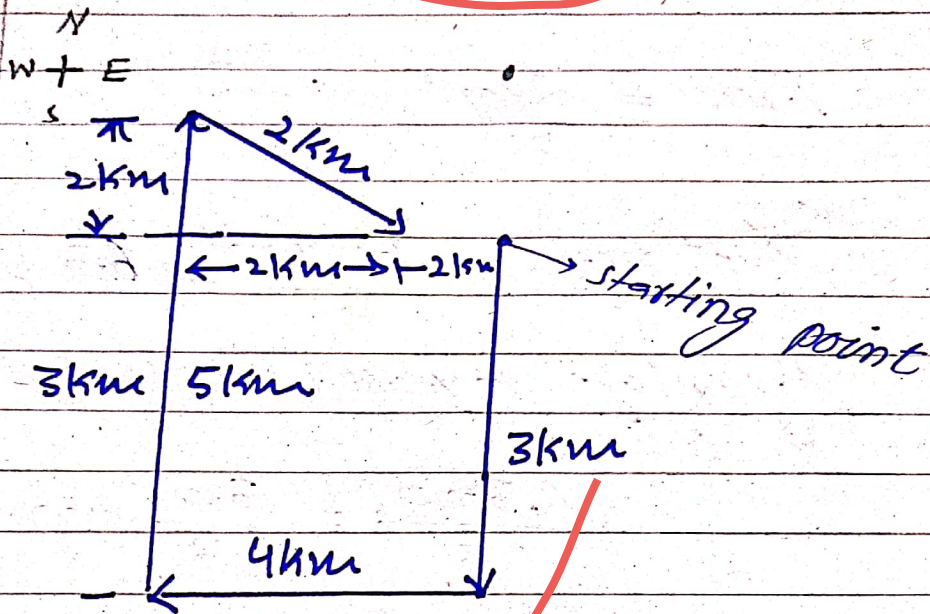 N
W E
S
2km
2km
2km 2km
starting
point
3km 5km
3km
4km